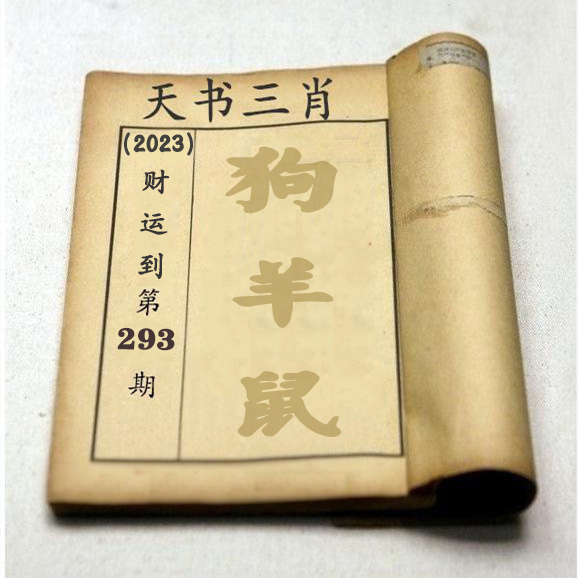 天书三肖
(2023)
财运到第
293
期
狗
羊
鼠